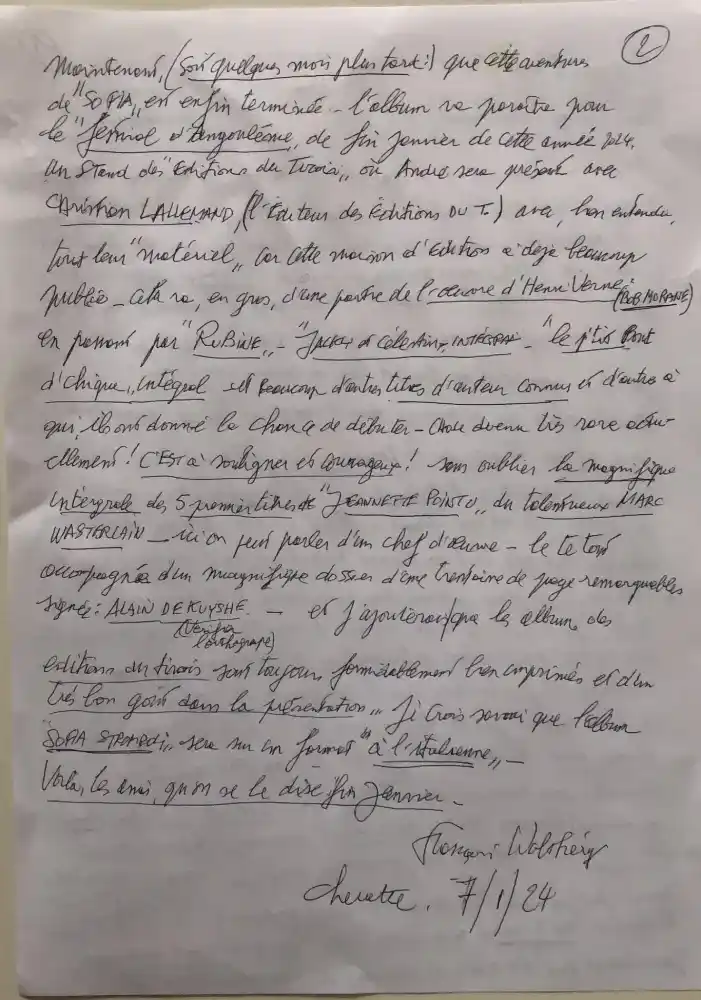 2
Maintenant, (soit quelques mois plus tard!) que cette aventure
de "SOFIA" est enfin terminée - l'album va paraître pour
le "festival d'angoulême, de fin janvier de cette année 2024.
au Stand des "Editions du Tiroir" où André sera présent avec
CHristian LALLEMAND, (l'Editeur des éditions DU T.) avec, bien entendu,
tout leur "matériel" car cette maison d'édition a déjà beaucoup
publié - cela va, en gros, d'une partie de l'œuvre d'Henri Vernes (BOB MORANE)
en passant par "RUBINE" - "JACKY et Célestin, INTÉGRAL - "le p'tit Bout
d'chique, intégral et beaucoup d'autres titres d'auteurs connus et d'autres à
qui ils ont donné la chance de débuter - chose devenu très rare actu-
ellement! C'EST à souligner et courageux! sans oublier la magnifique
intégrale des 5 premiers titres de "JEANNETTE POINTU" du talentueux MARC
WASTERLAIN - ici on peut parler d'un chef d'œuvre - le tout
accompagné d'un magnifique dossier d'une trentaine de page remarquables
signée: ALAIN DE KUYSHE. - et j'ajouterai que les albums des
(Vérifier
l'orthographe)
editions du tiroir sont toujours formidablement bien imprimés et d'un
très bon goût dans la présentation" Je crois savoir que l'album
"SOFIA" sera sur un format "à l'italienne" -
Voilà, les amis, qu'on se le dise fin Janvier -
François Walthéry
Cheratte. 7/1/24